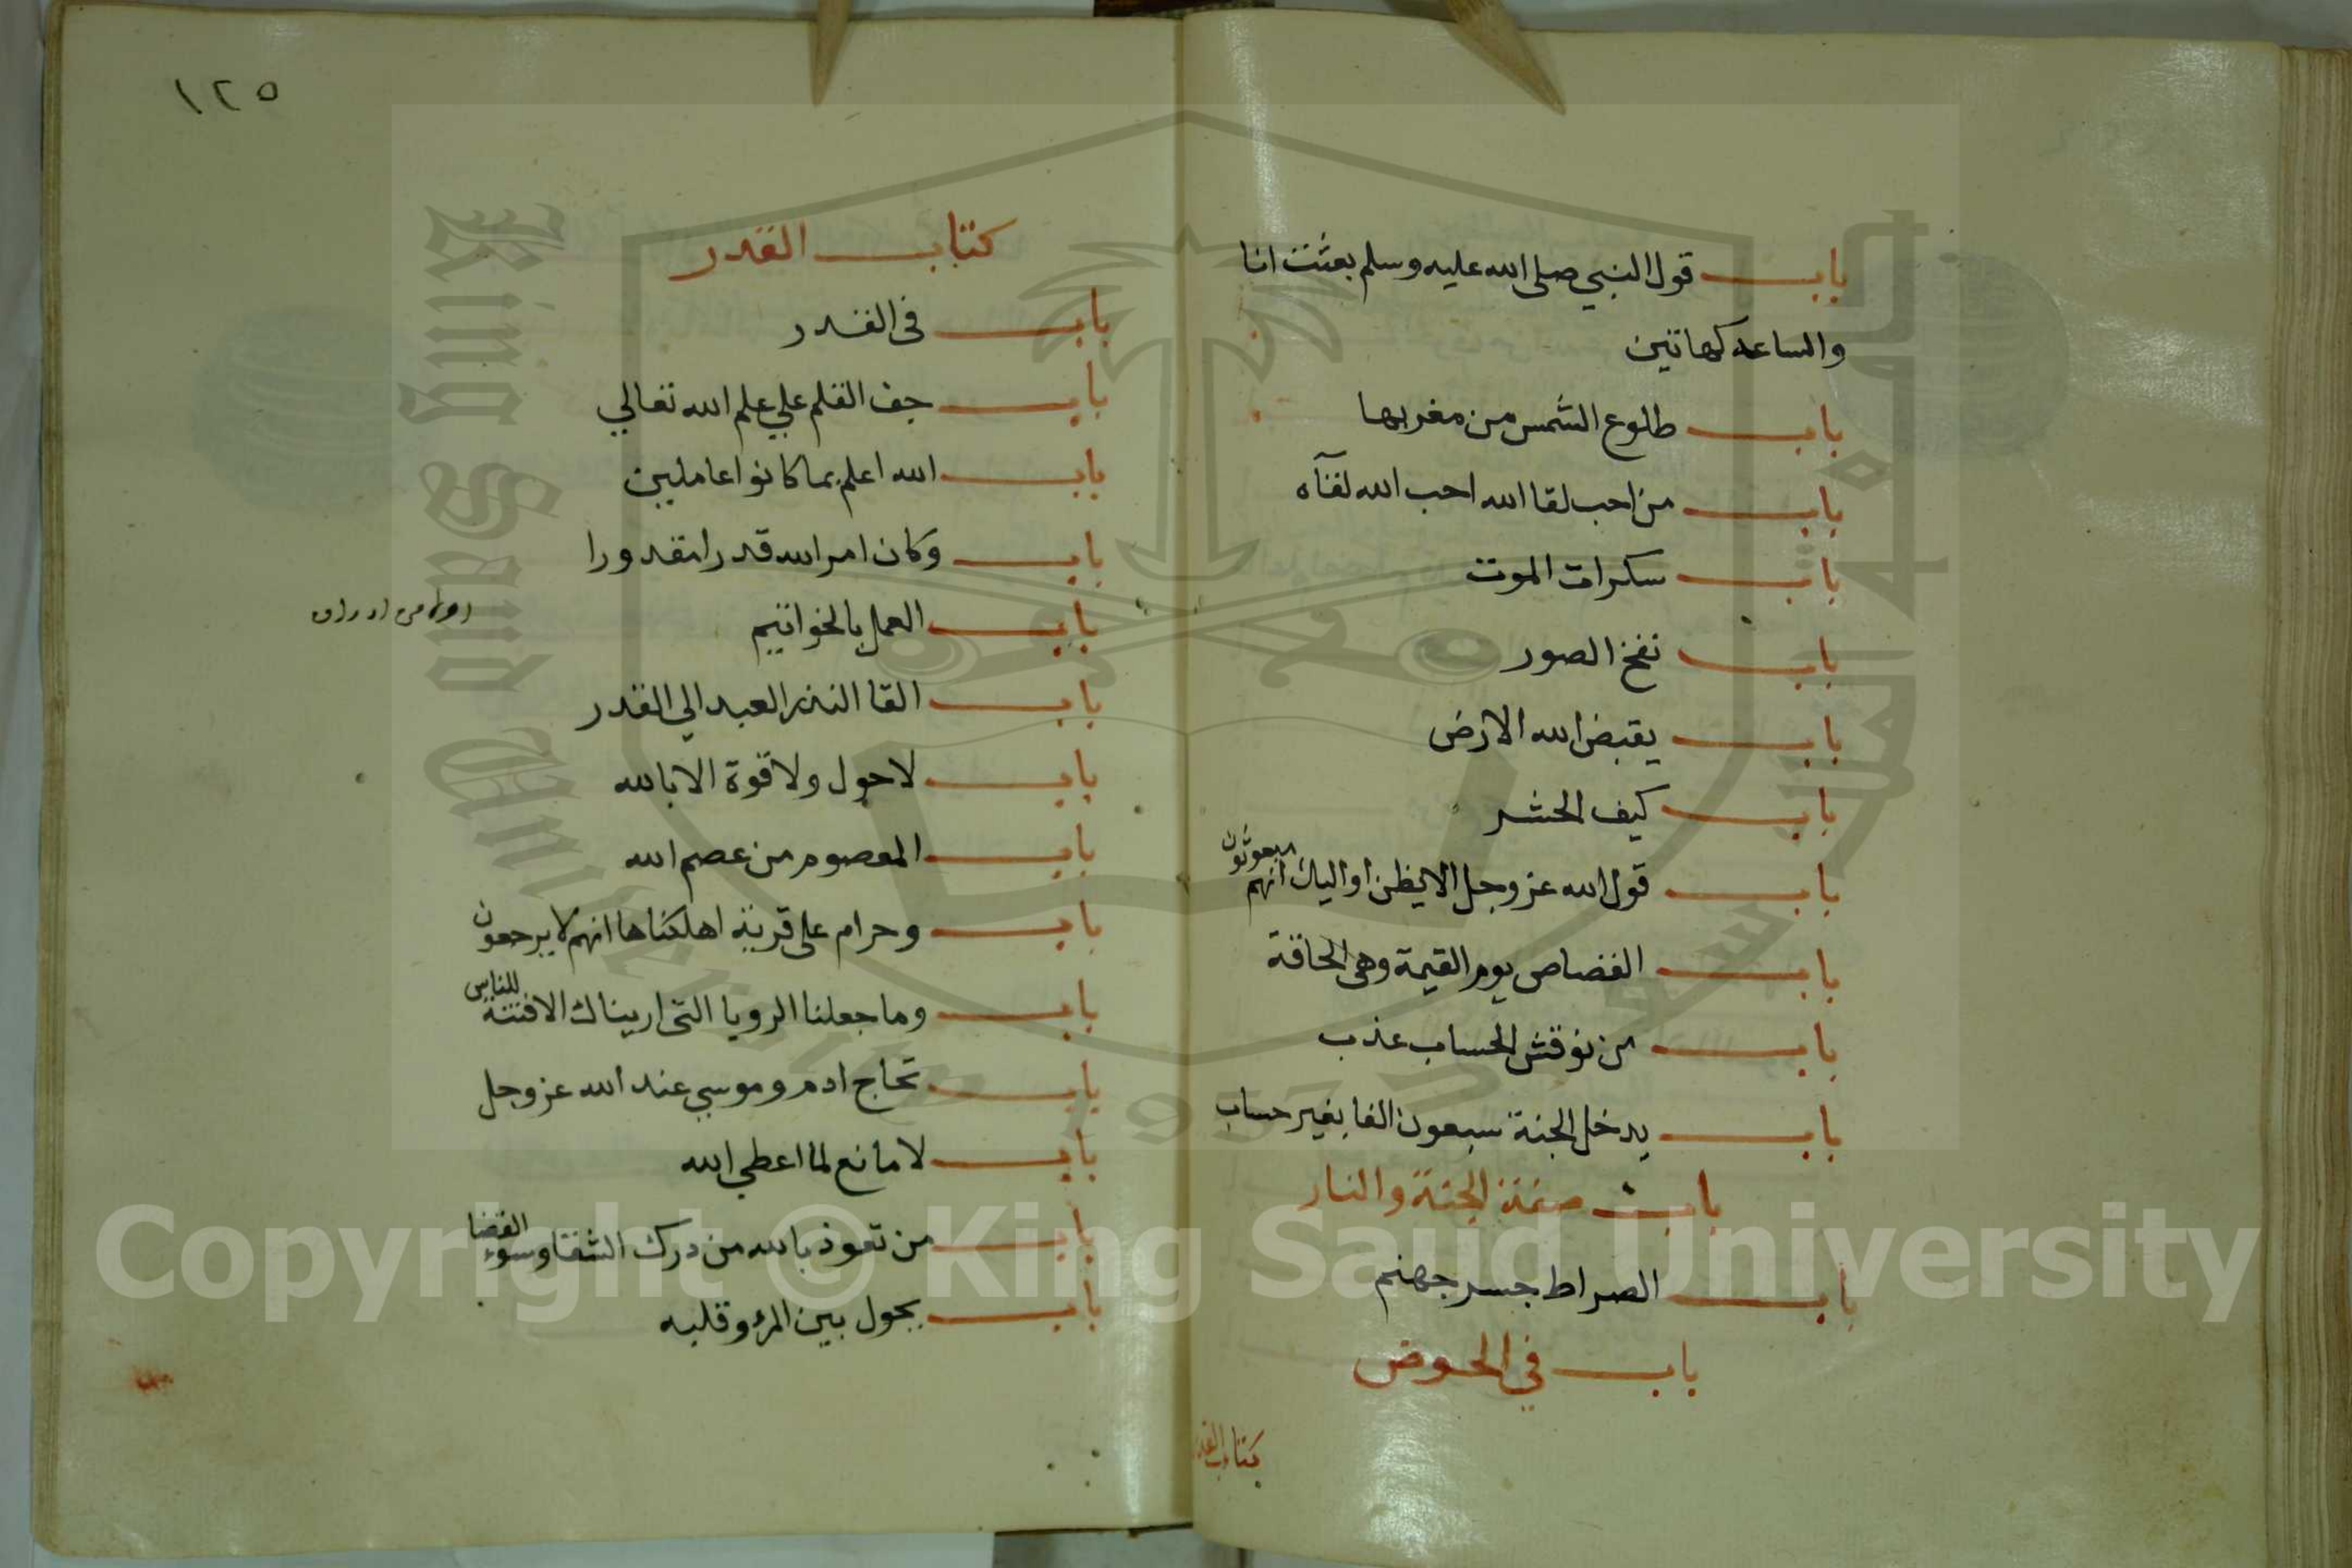 باب قول النبي صلى الله عليه وسلم بعثت انا
والساعة كهاتين
باب طلوع الشمس من مغربها
باب من احب لقا الله احب الله لقآه
باب سكرات الموت
باب نفخ الصور
باب يقبض الله الارض
باب كيف الحشر
باب قول الله عز وجل الا يظن اوليك انهم مبعوثون
باب القصاص يوم القيمة وهى الحاقة
باب من نوقش الحساب عذب
باب يدخل الجنة سبعون الفا بغير حساب
باب صفة الجنة والنار
باب الصراط جسر جهنم
باب في الحوض
كتاب القدر
١٢٥
كتاب القدر
باب فى القدر
باب جف القلم علي علم الله تعالي
باب الله اعلم بما كانوا عاملين
باب وكان امر الله قدرا مقدورا
باب العمل بالخواتيم
باب القا النذر العبد الي القدر
باب لا حول ولا قوة الا بالله
باب المعصوم من عصم الله
باب وحرام على قرية اهلكناها انهم لا يرجعون
باب وما جعلنا الرويا التى اريناك الا فتنة للناس
باب تحاج ادم وموسي عند الله عز وجل
باب لا مانع لما اعطي الله
باب من تعوذ بالله من درك الشقا وسوء القضا
باب يحول بين المرء وقلبه
Copyright © King Saud University
King Saud University
1957